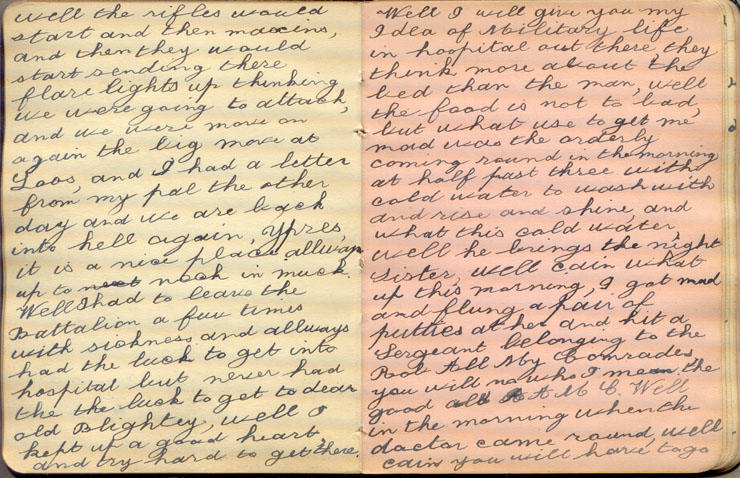 well the rifles would
start and then maxins,
and then they would
start sending there
flare lights up thinking
we were going to attack,
and we were move on
again the big move at
Loos, and I had a letter
from my pal the other
day and we are back
into hell again, Ypres,
it is a nice place allways
up to neck in muck.
Well I had to leave the
Battalion a few times
with sickness and allways
had the luck to get into
hospital but never had
the the luck to get to dear
old Blightey, well I
kept up a good heart,
and try hard to get there.
Well I will give you my
Idea of Military life
in hospital out there they
think more about the
bed than the man, well
the food is not to bad,
but what use to get me
mad was the orderly
coming round in the morning
at half past three with
cold water to wash with
and rise and shine, and
what this cold water,
well he brings the night
Sister, well cain what
up this morning, I got mad
and flung a pair of
putties at her and hit a
Sergeant belonging to the
Rob All My Comrades,
you will no who I mean the
good old R A M C, Well
in the morning when the
doctor came round, well
cain you will have to go